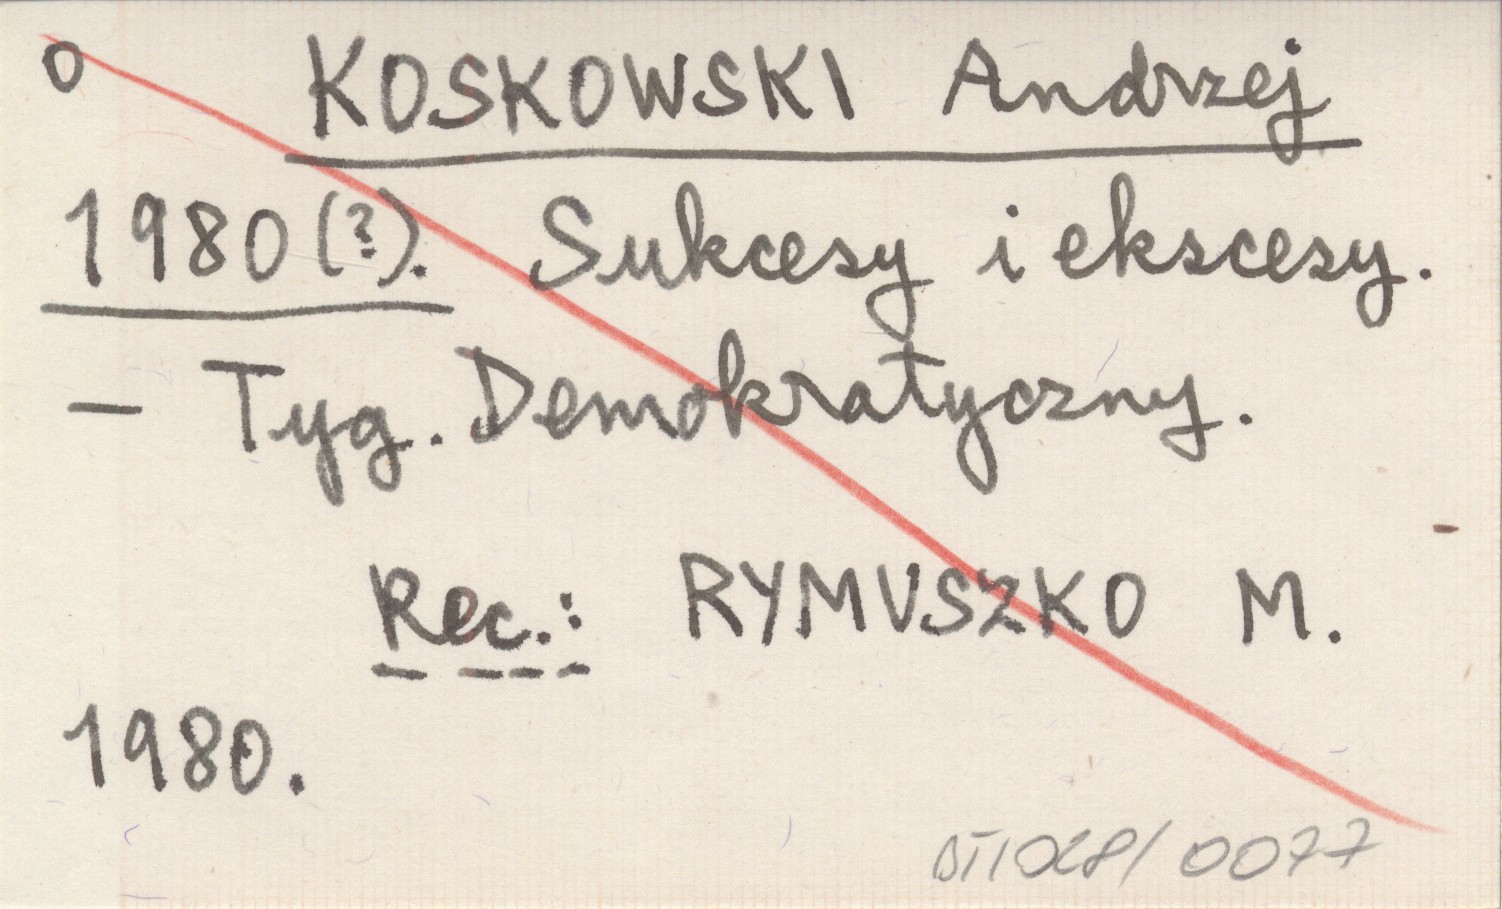 o KOSKOWSKI Andrzej
1980(?). Sukcesy i ekscesy.
– Tyg. Demokratyczny.
Rec.: RYMUSZKO M.
1980.
/0077